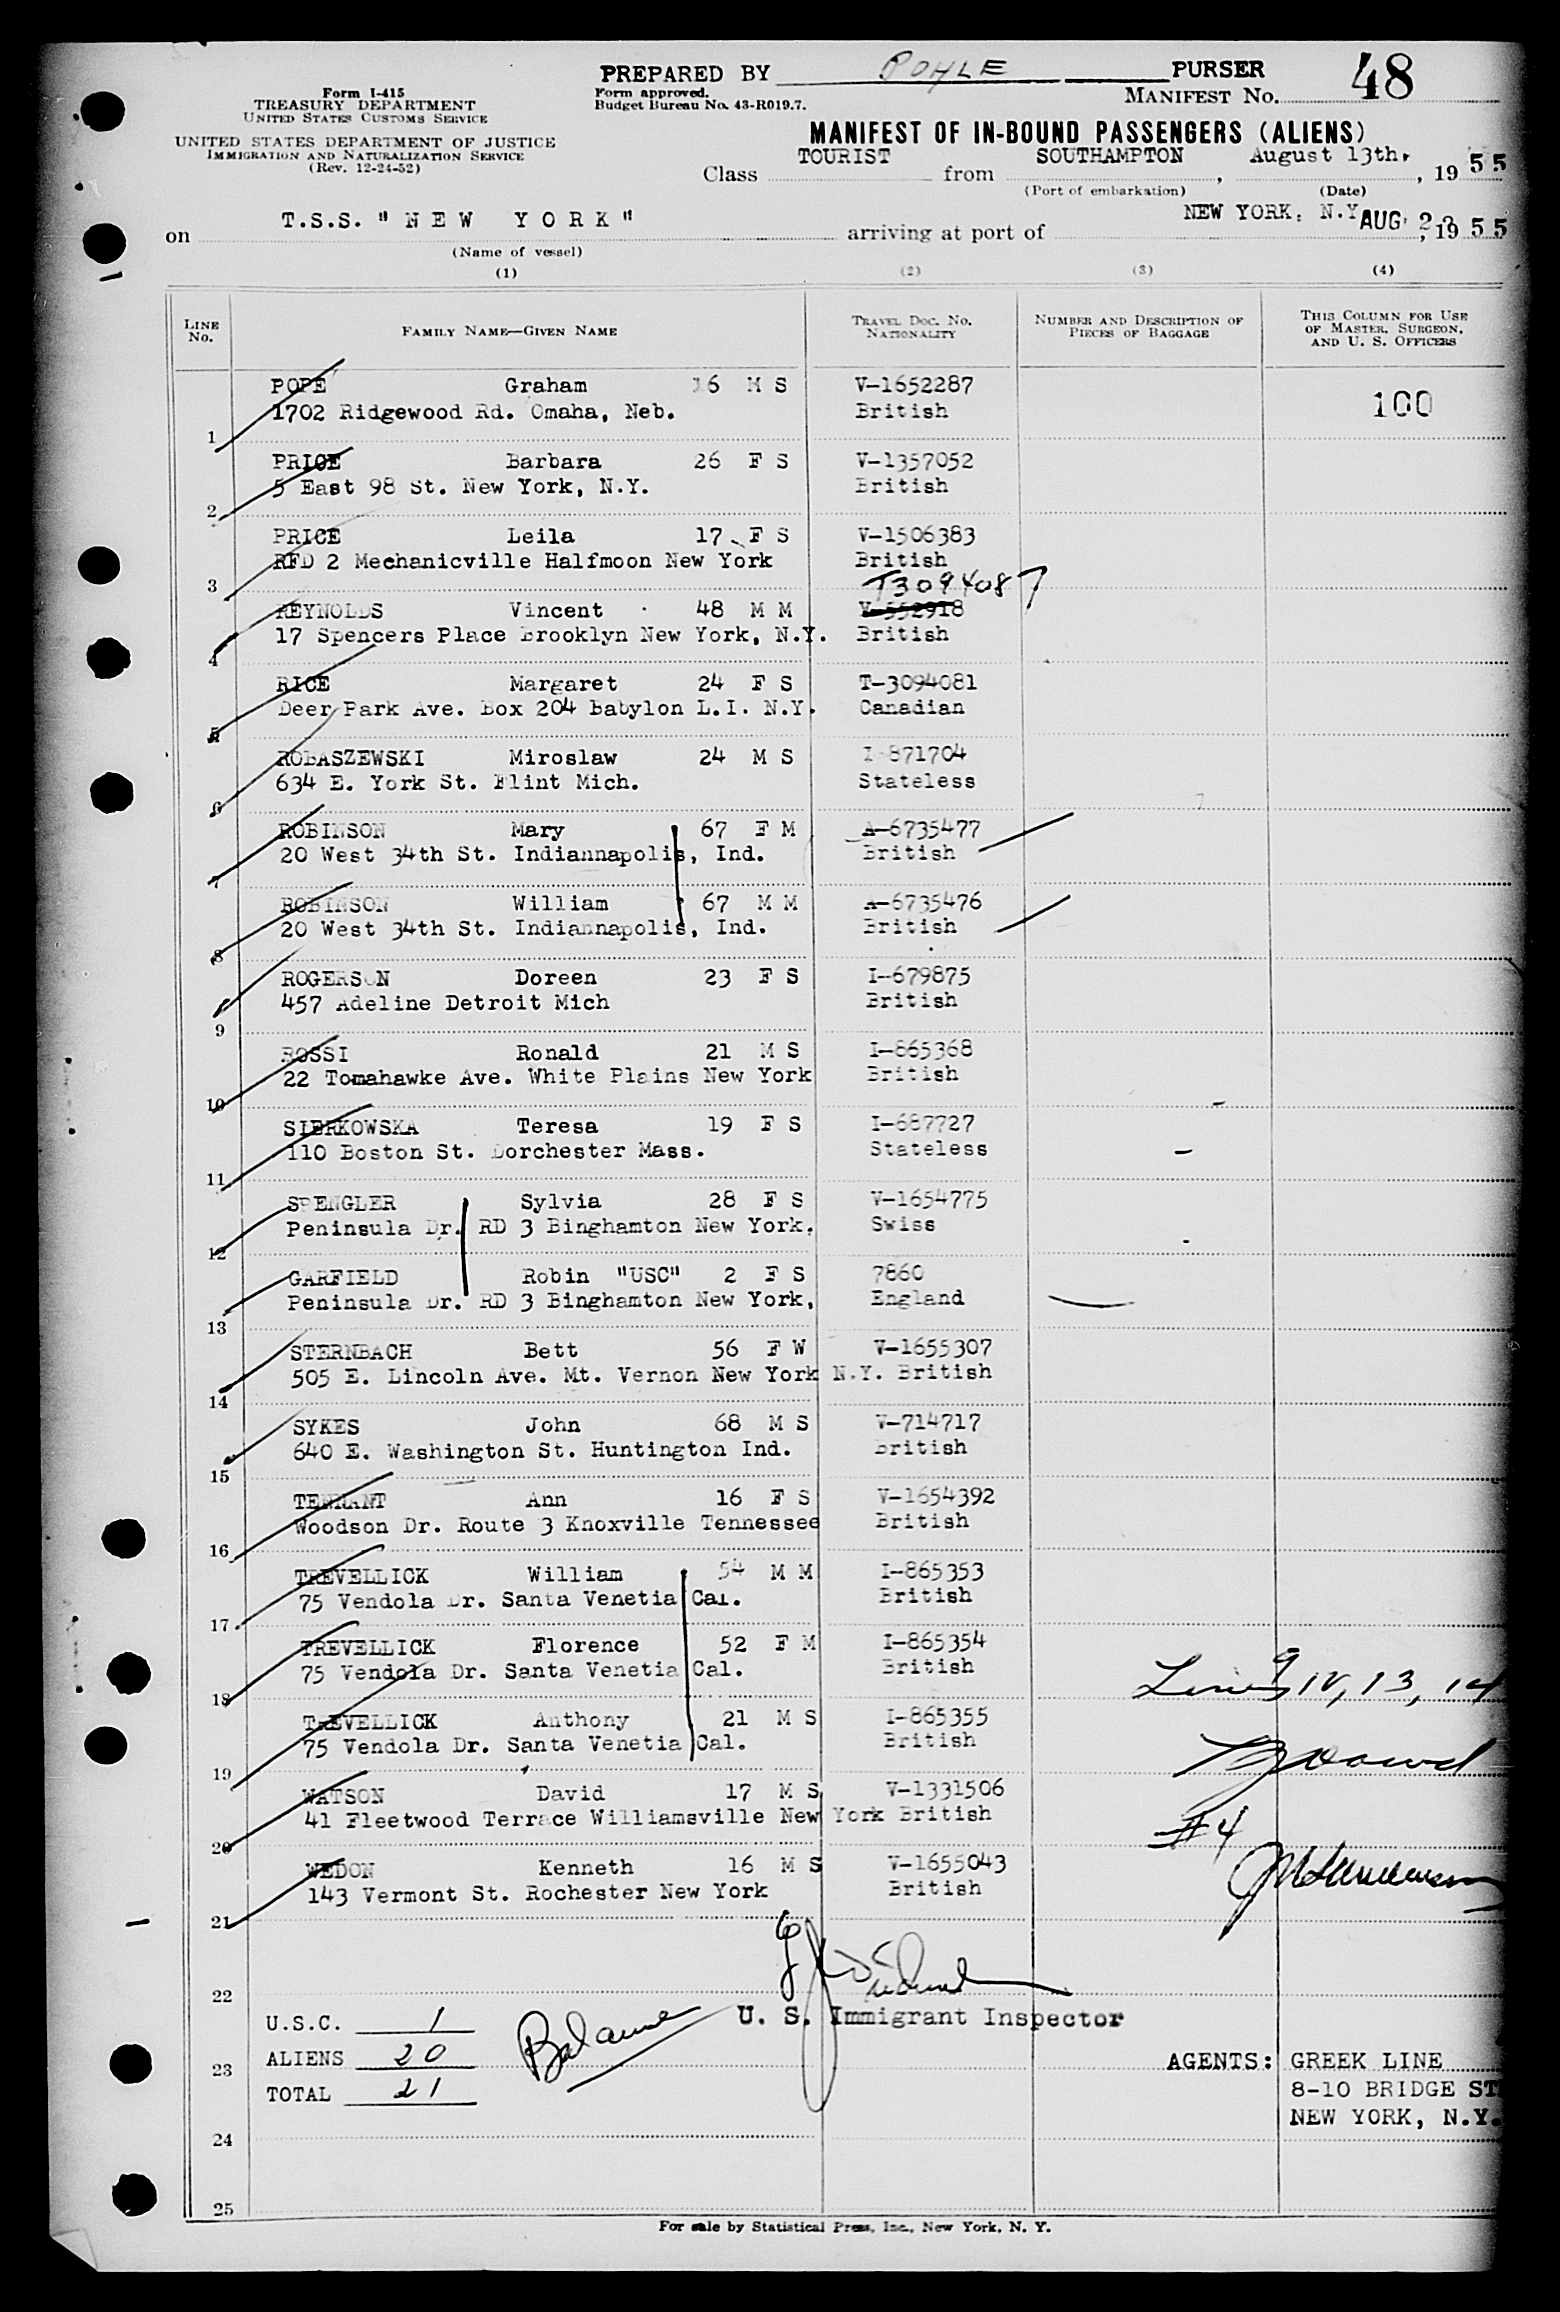 PREPARED BY POHLE PURSER 48
Form I-415
TREASURY DEPARTMENT
UNITED STATES CUSTOMS SERVICE
UNITED STATES DEPARTMENT OF JUSTICE
IMMIGRATION AND NATURALIZATION SERVICE
(Rev. 12-24-52)
Form approved.
Budget Bureau No. 43-R019.7.
MANIFEST NO.
MANIFEST OF IN-BOUND PASSENGERS (ALIENS)
Class TOURIST from SOUTHAMPTON, August 13th, 1955
(Port of embarkation) (Date)
on T.S.S. "NEW YORK" arriving at port of NEW YORK, N.Y. AUG 2, 1955
(Name of vessel)
(1) (2) (3) (4)
LINE NO. FAMILY NAME—GIVEN NAME TRAVEL DOC. NO. NATIONALITY NUMBER AND DESCRIPTION OF PIECES OF BAGGAGE THIS COLUMN FOR USE OF MASTER, SURGEON, AND U. S. OFFICERS
POPE Graham 16 M S V-1652287
1702 Ridgewood Rd. Omaha, Neb. British 100
1
PRICE Barbara 26 F S V-1357052
5 East 98 St. New York, N.Y. British
2
PRICE Leila 17 F S V-1506383
RFD 2 Mechanicville Halfmoon New York British
3 T3094087
REYNOLDS Vincent 48 M M V-552918
17 Spencers Place Brooklyn New York, N.Y. British
4
RICE Margaret 24 F S T-3094081
Deer Park Ave. Box 204 Babylon L.I. N.Y. Canadian
5
ROBASZEWSKI Miroslaw 24 M S I-871704
634 E. York St. Flint Mich. Stateless
6
ROBINSON Mary 67 F M A-6735477
20 West 34th St. Indiannapolis, Ind. British
7
ROBINSON William 67 M M A-6735476
20 West 34th St. Indiannapolis, Ind. British
8
ROGERSON Doreen 23 F S I-679875
457 Adeline Detroit Mich British
9
ROSSI Ronald 21 M S I-865368
22 Tomahawke Ave. White Plains New York British
10
SIERKOWSKA Teresa 19 F S I-687727
110 Boston St. Dorchester Mass. Stateless
11
SPENGLER Sylvia 28 F S V-1654775
Peninsula Dr. RD 3 Binghamton New York. Swiss
12
GARFIELD Robin "USC" 2 F S 7860
Peninsula Dr. RD 3 Binghamton New York, England
13
STERNBACH Bett 56 F W V-1655307
505 E. Lincoln Ave. Mt. Vernon New York N.Y. British
14
SYKES John 68 M S V-714717
640 E. Washington St. Huntington Ind. British
15
TENNANT Ann 16 F S V-1654392
Woodson Dr. Route 3 Knoxville Tennessee British
16
TREVELLICK William 54 M M I-865353
75 Vendola Dr. Santa Venetia Cal. British
17
TREVELLICK Florence 52 F M I-865354
75 Vendola Dr. Santa Venetia Cal. British
18 Lines 9 12, 13, 14
TREVELLICK Anthony 21 M S I-865355
75 Vendola Dr. Santa Venetia Cal. British
19
WATSON David 17 M S V-1331506
41 Fleetwood Terrace Williamsville New York British
20 #4
WEDON Kenneth 16 M S V-1655043
143 Vermont St. Rochester New York British
21
22
U.S.C. 1 Balance U. S. Immigrant Inspector
ALIENS 20
23 AGENTS: GREEK LINE
TOTAL 21 8-10 BRIDGE ST
NEW YORK, N.Y.
24
25
For sale by Statistical Press, Inc., New York, N. Y.